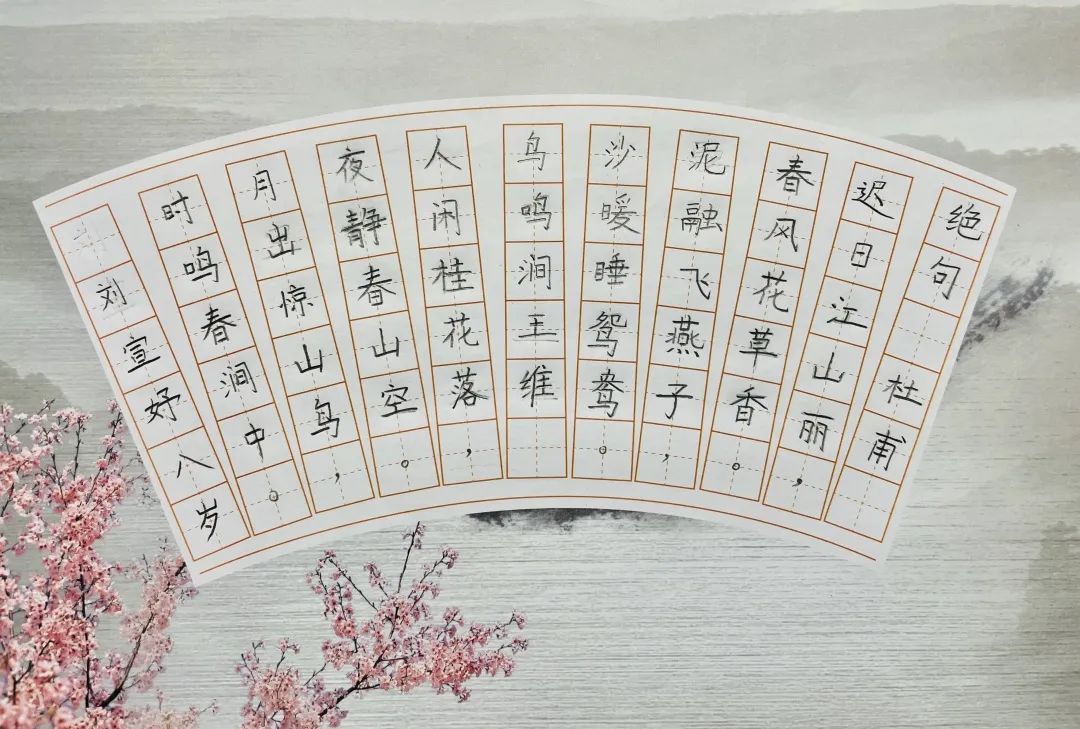 绝句 杜甫
迟日江山丽，
春风花草香。
泥融飞燕子，
沙暖睡鸳鸯。
鸟鸣涧王维
人闲桂花落，
夜静春山空。
月出惊山鸟，
时鸣春涧中。
刘宣妤八岁